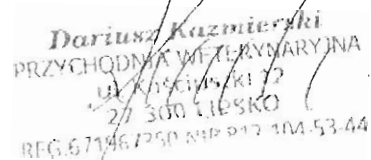 Dariusz Kazmierski
PRZYCHODNIA WETERYNARYJNA
ul. Kościuszki
27-300 LIPSKO
REG. NIP 812-104-53-44